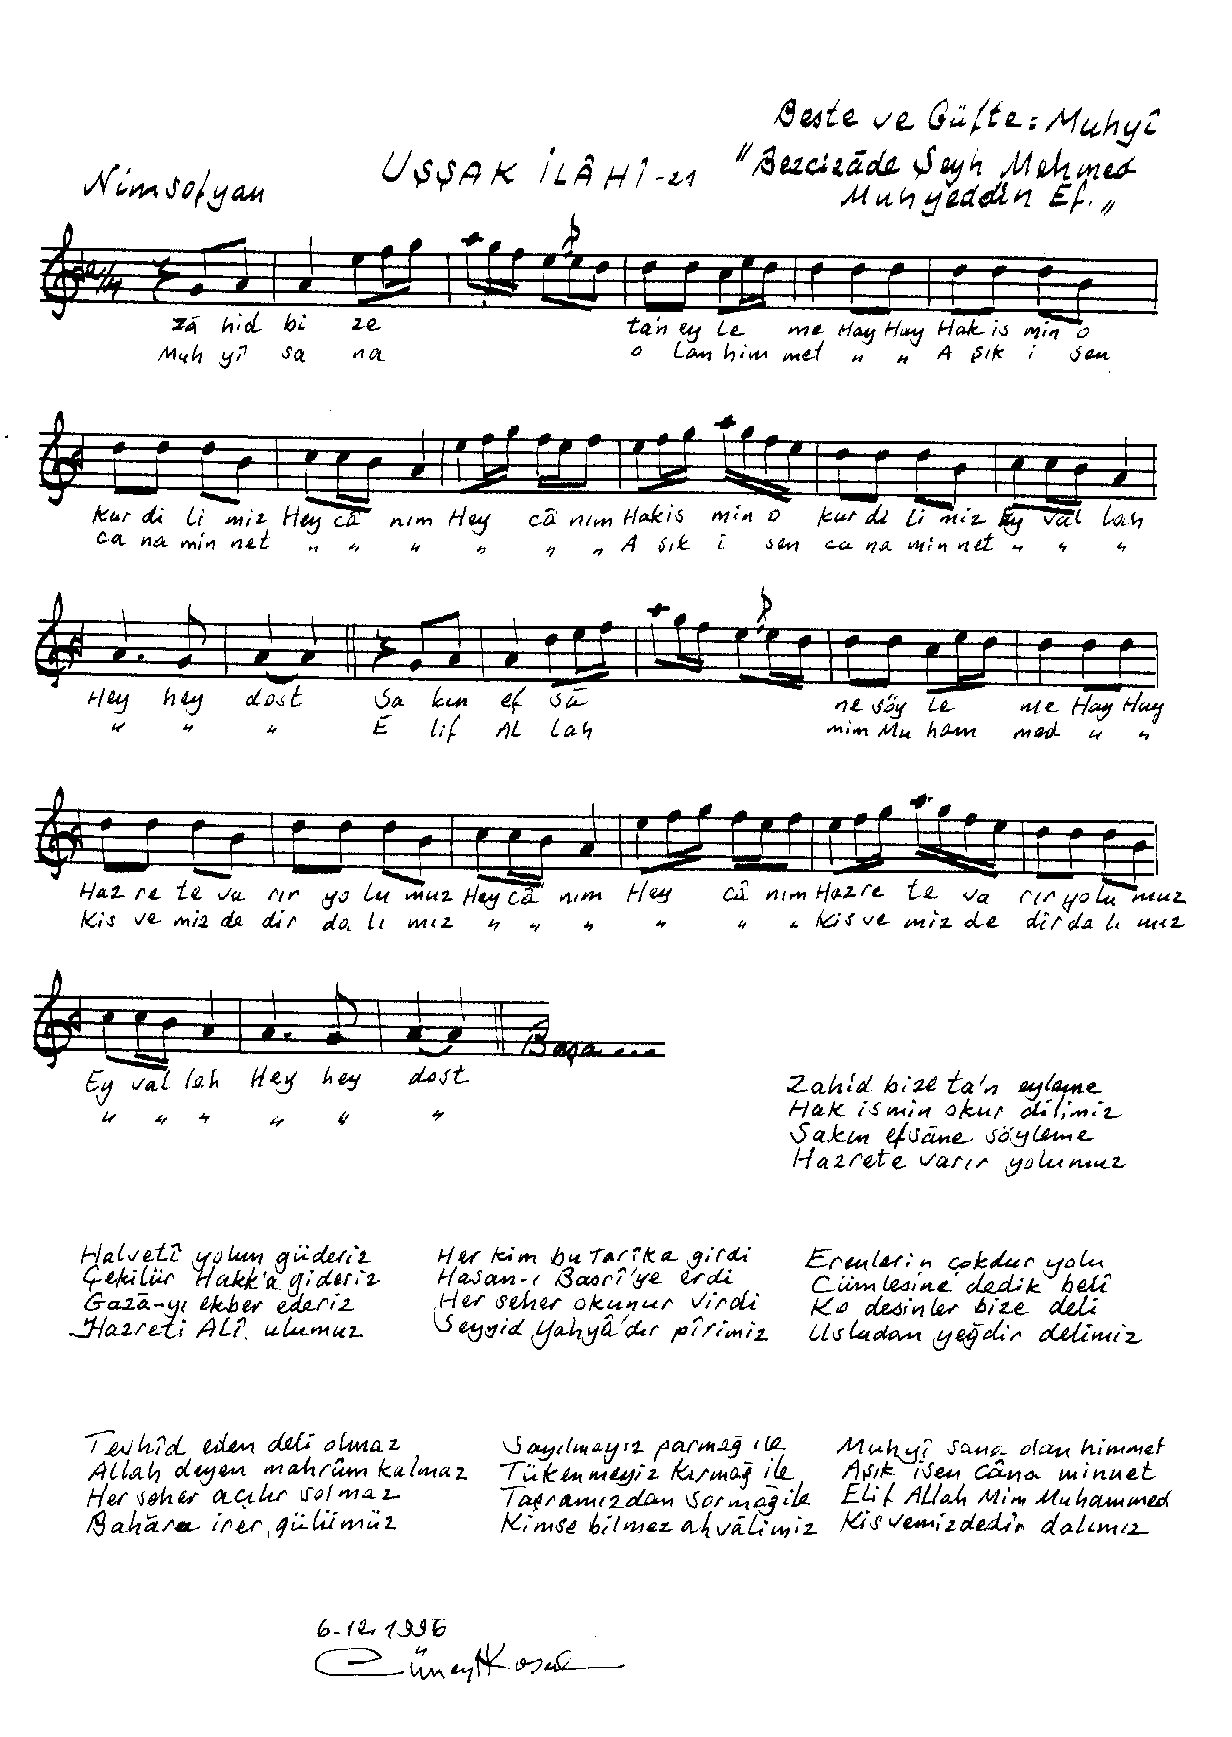 Beste ve Güfte: Muhyî
Nimsofyan
UŞŞAK İLÂHÎ-21
"Bezcizâde Şeyh Mehmed
Muhyeddin Ef."
2/4
zâ hid bi ze ta'n ey le me Hay Huy Hak is min o
Muh yî sa na o lan him met " " A şık i sen
kur di li miz Hey câ nım Hey câ nım Hak is min o kur di li miz Ey val lah
ca na min net " " " " " " A şık i sen ca na min net " " "
Hey hey dost Sa kın ef sâ ne söy le me Hay Huy
" " " E lif Al lah mim Mu ham med " "
Haz re te va rır yo lu muz Hey câ nım Hey câ nım Haz re te va rır yo lu muz
Kis ve miz de dir da lı mız " " " " " " Kis ve miz de dir da lı mız
Başa....
Ey val lah Hey hey dost
" " " " " "
Zahid bize ta'n eyleme
Hak ismin okur dilimiz
Sakın efsâne söyleme
Hazrete varır yolumuz
Halvetî yolun güderiz
Çekilür Hakk'a gideriz
Gazâ-yı ekber ederiz
Hazreti Alî ulumuz
Her kim bu Tarîka girdi
Hasan-ı Basrî'ye erdi
Her seher okunur virdi
Seyyid Yahyâ'dır pîrimiz
Erenlerin çokdur yolu
Cümlesine dedik belî
Ko desinler bize deli
Usludan yeğdir delimiz
Tevhîd eden deli olmaz
Allah deyen mahrûm kalmaz
Her seher açılır solmaz
Bahâra irer gülümüz
Sayılmayız parmağ ile
Tükenmeyiz kırmağ ile
Taşramızdan sormağ ile
Kimse bilmez ahvâlimiz
Muhyî sana olan himmet
Aşık isen câna minnet
Elif Allah Mim Muhammed
Kisvemizdedir dalımız
6-12.1996
Cüneyt Kosal